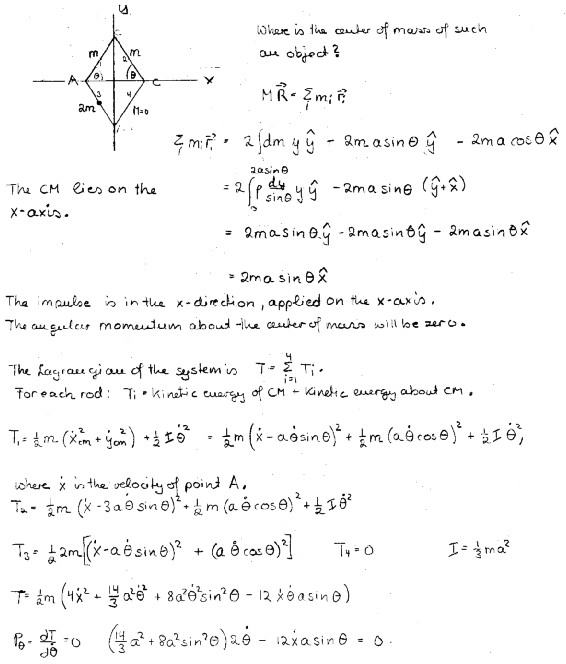 y
Where is the center of mass of such
an object?
m 1 2 m
A θ θ C x
3 4
2m M=0
M R⃗ = Σ_i m_i r⃗_i
Σ_i m_i r⃗_i = 2∫dm y ŷ - 2m a sinθ ŷ - 2ma cosθ x̂
The CM lies on the
x-axis.
= 2∫_0^{2a sinθ} ρ dy/sinθ y ŷ - 2ma sinθ (ŷ+x̂)
= 2ma sinθ ŷ - 2ma sinθ ŷ - 2ma sinθ x̂
= 2ma sinθ x̂
The impulse is in the x-direction, applied on the x-axis.
The angular momentum about the center of mass will be zero.
The Lagrangian of the system is T = Σ_{i=1}^4 T_i.
For each rod: T_i = Kinetic energy of CM + Kinetic energy about CM.
T_1 = ½m (ẋ²_cm + ẏ²_cm) + ½ I θ̇² = ½m (ẋ - aθ̇ sinθ)² + ½m (aθ̇ cosθ)² + ½ I θ̇²,
where ẋ is the velocity of point A.
T_2 = ½m (ẋ - 3aθ̇ sinθ)² + ½m (aθ̇ cosθ)² + ½ I θ̇²
T_3 = ½ 2m [(ẋ - aθ̇ sinθ)² + (aθ̇ cosθ)²] T_4 = 0 I = ⅓ ma²
T = ½m (4ẋ² + 14/3 a²θ̇² + 8a²θ̇² sin²θ - 12 ẋθ̇ a sinθ)
P_θ = ∂T/∂θ̇ = 0 (14/3 a² + 8a² sin²θ) 2θ̇ - 12ẋa sinθ = 0.